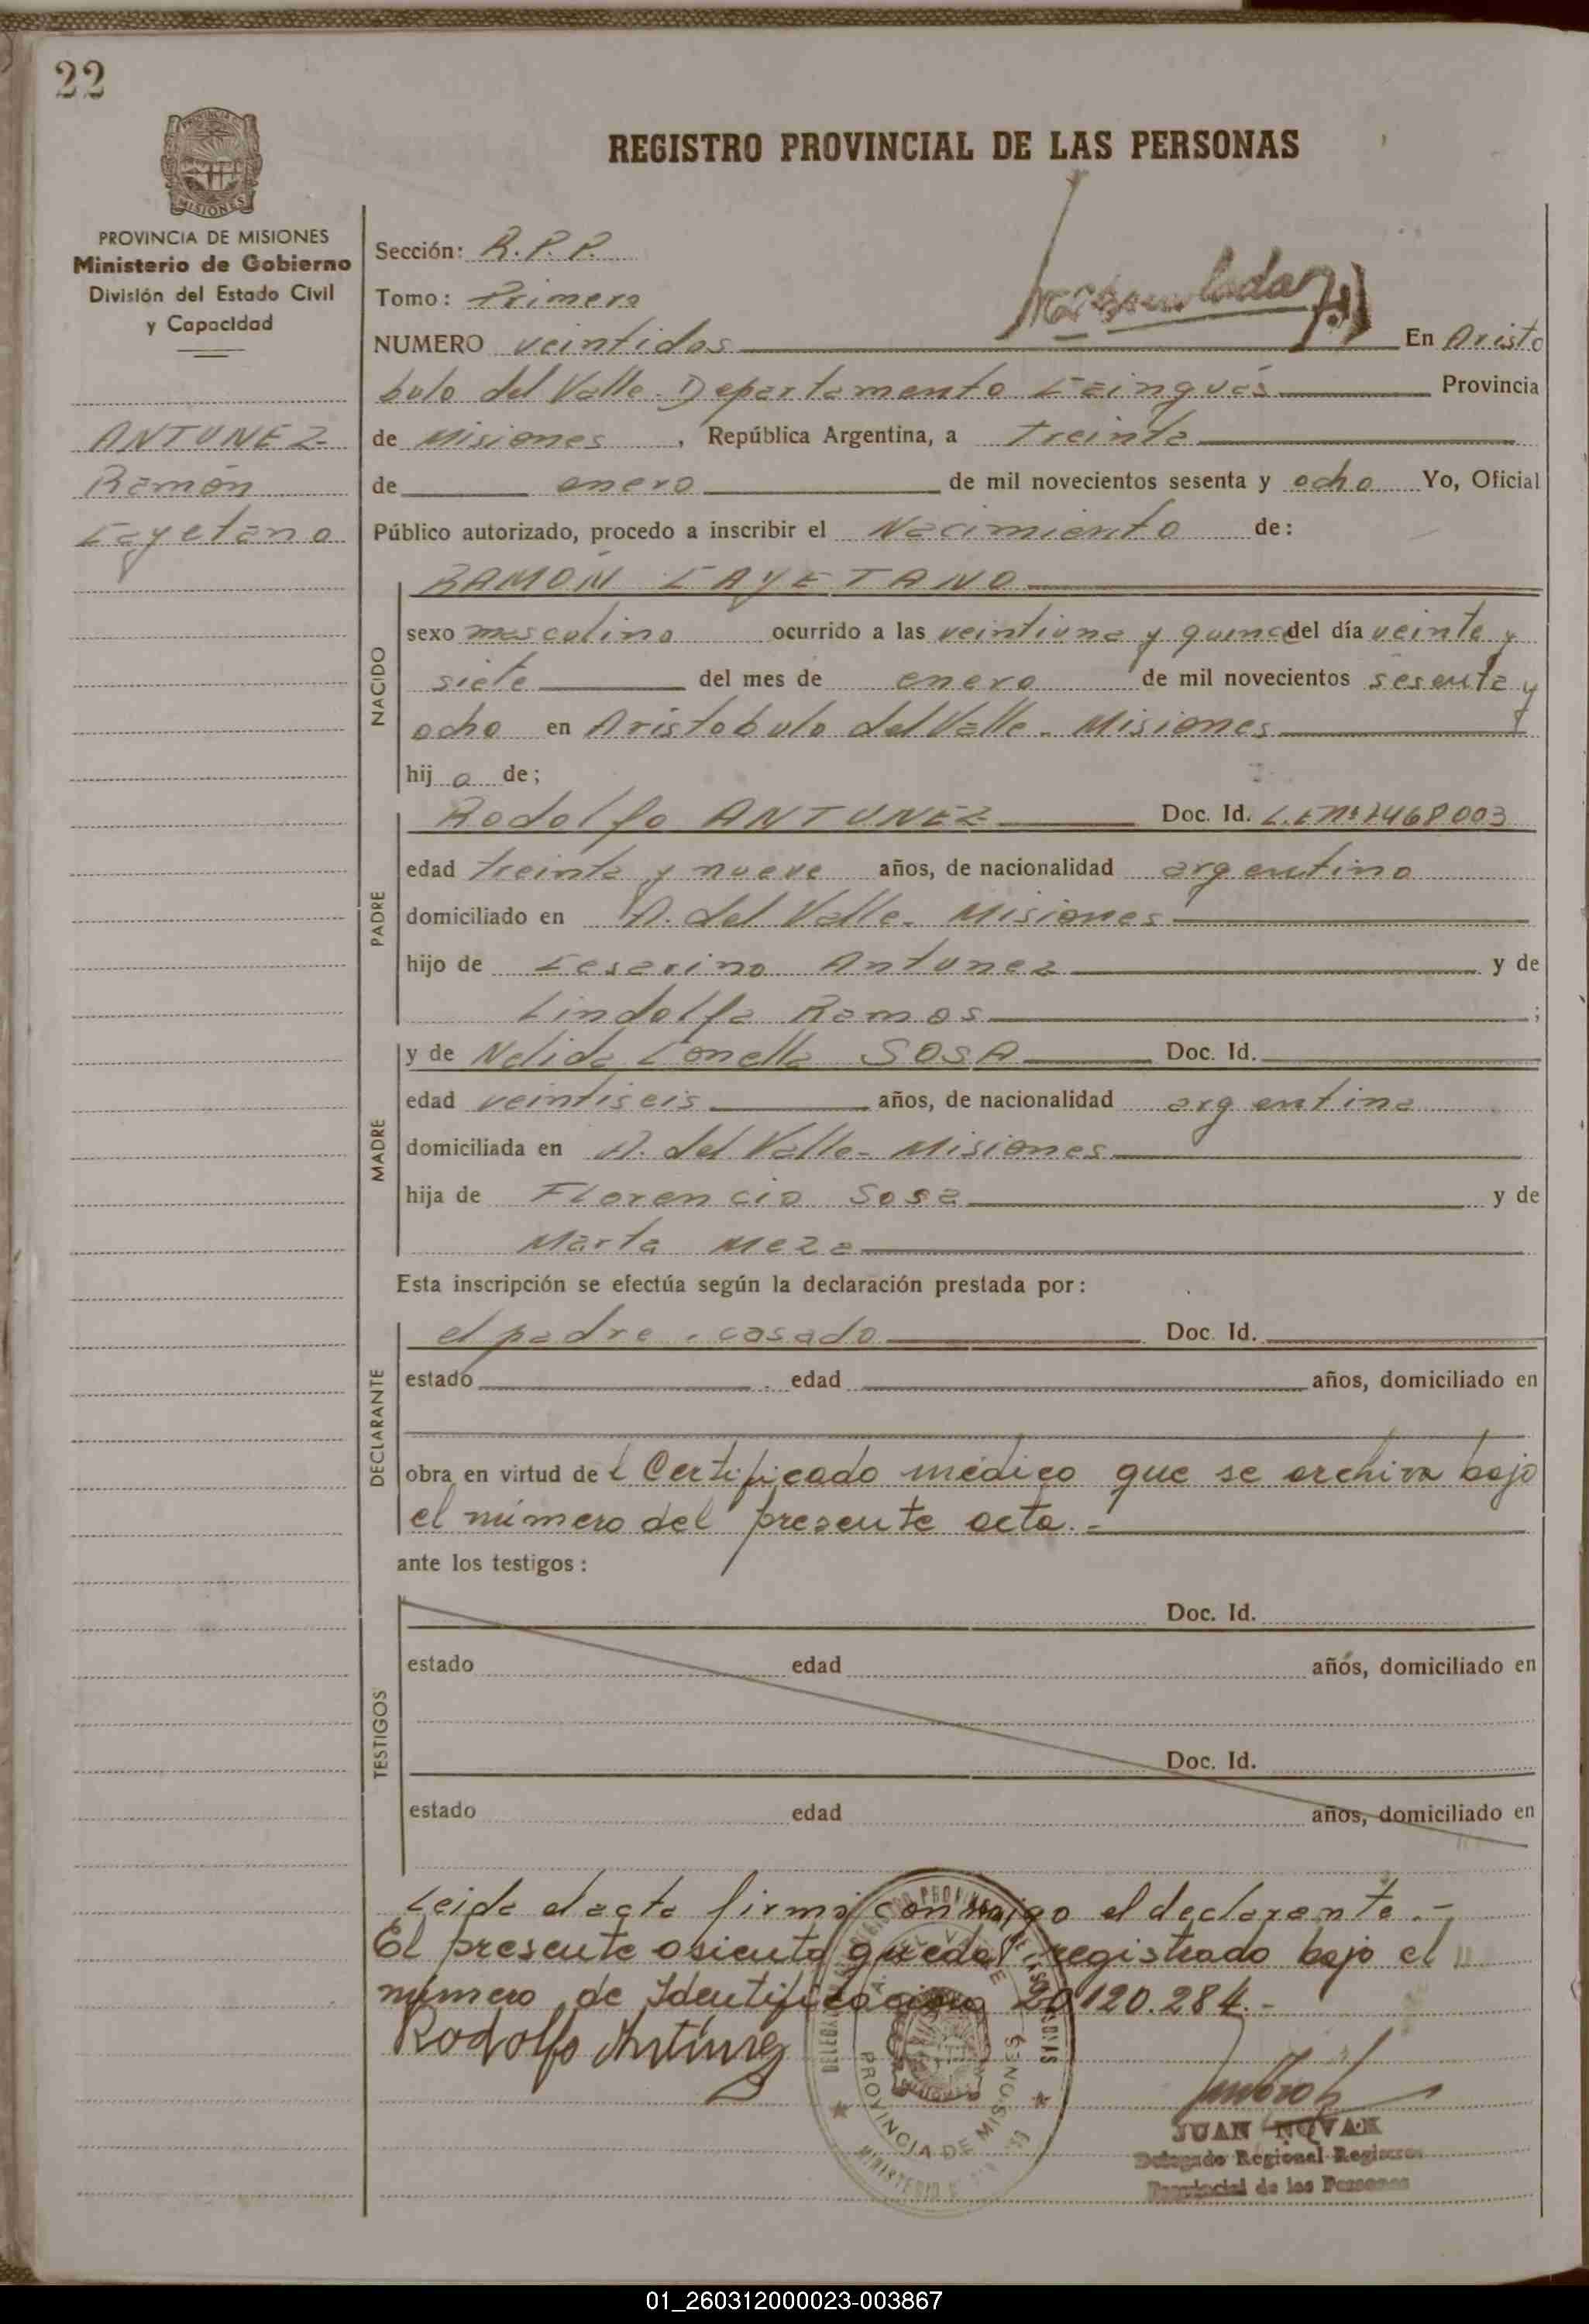 22
REGISTRO PROVINCIAL DE LAS PERSONAS
PROVINCIA DE MISIONES
Ministerio de Gobierno
División del Estado Civil
y Capacidad
ANTUNEZ
Ramón
Cayetano
Sección: R.P.P.
Tomo: Primero
NUMERO veintidos En Aristo
bulo del Valle Departamento Caingués Provincia
de Misiones, República Argentina, a treinta
de enero de mil novecientos sesenta y ocho Yo, Oficial
Público autorizado, procedo a inscribir el Nacimiento de:
NACIDO
RAMÓN CAYETANO
sexo masculino ocurrido a las veintiuna y quince del día veinte y
siete del mes de enero de mil novecientos sesenta y
ocho en Aristobulo del Valle - Misiones
hijo de;
PADRE
Rodolfo ANTUNEZ Doc. Id. L.E. nº 7468003
edad treinta y nueve años, de nacionalidad argentino
domiciliado en A. del Valle - Misiones
hijo de Cesarino Antunez y de
Lindolfa Ramos ;
MADRE
y de Nelida SOSA Doc. Id.
edad veintiseis años, de nacionalidad argentina
domiciliada en A. del Valle - Misiones
hija de Florencio Sosa y de
Marta Meza
Esta inscripción se efectúa según la declaración prestada por:
DECLARANTE
el padre, casado Doc. Id.
estado edad años, domiciliado en
obra en virtud de l Certificado médico que se archiva bajo
el número del presente acta.-
ante los testigos:
TESTIGOS
Doc. Id.
estado edad años, domiciliado en
Doc. Id.
estado edad años, domiciliado en
Leida el acta firma conmigo el declarante.-
El presente asiento queda registrado bajo el
número de Identificación 20.120.284.-
Rodolfo Antúnez
PROVINCIA DE MISIONES
JUAN NOVAK
Delegado Regional Registro
Provincial de las Personas
01_260312000023-003867